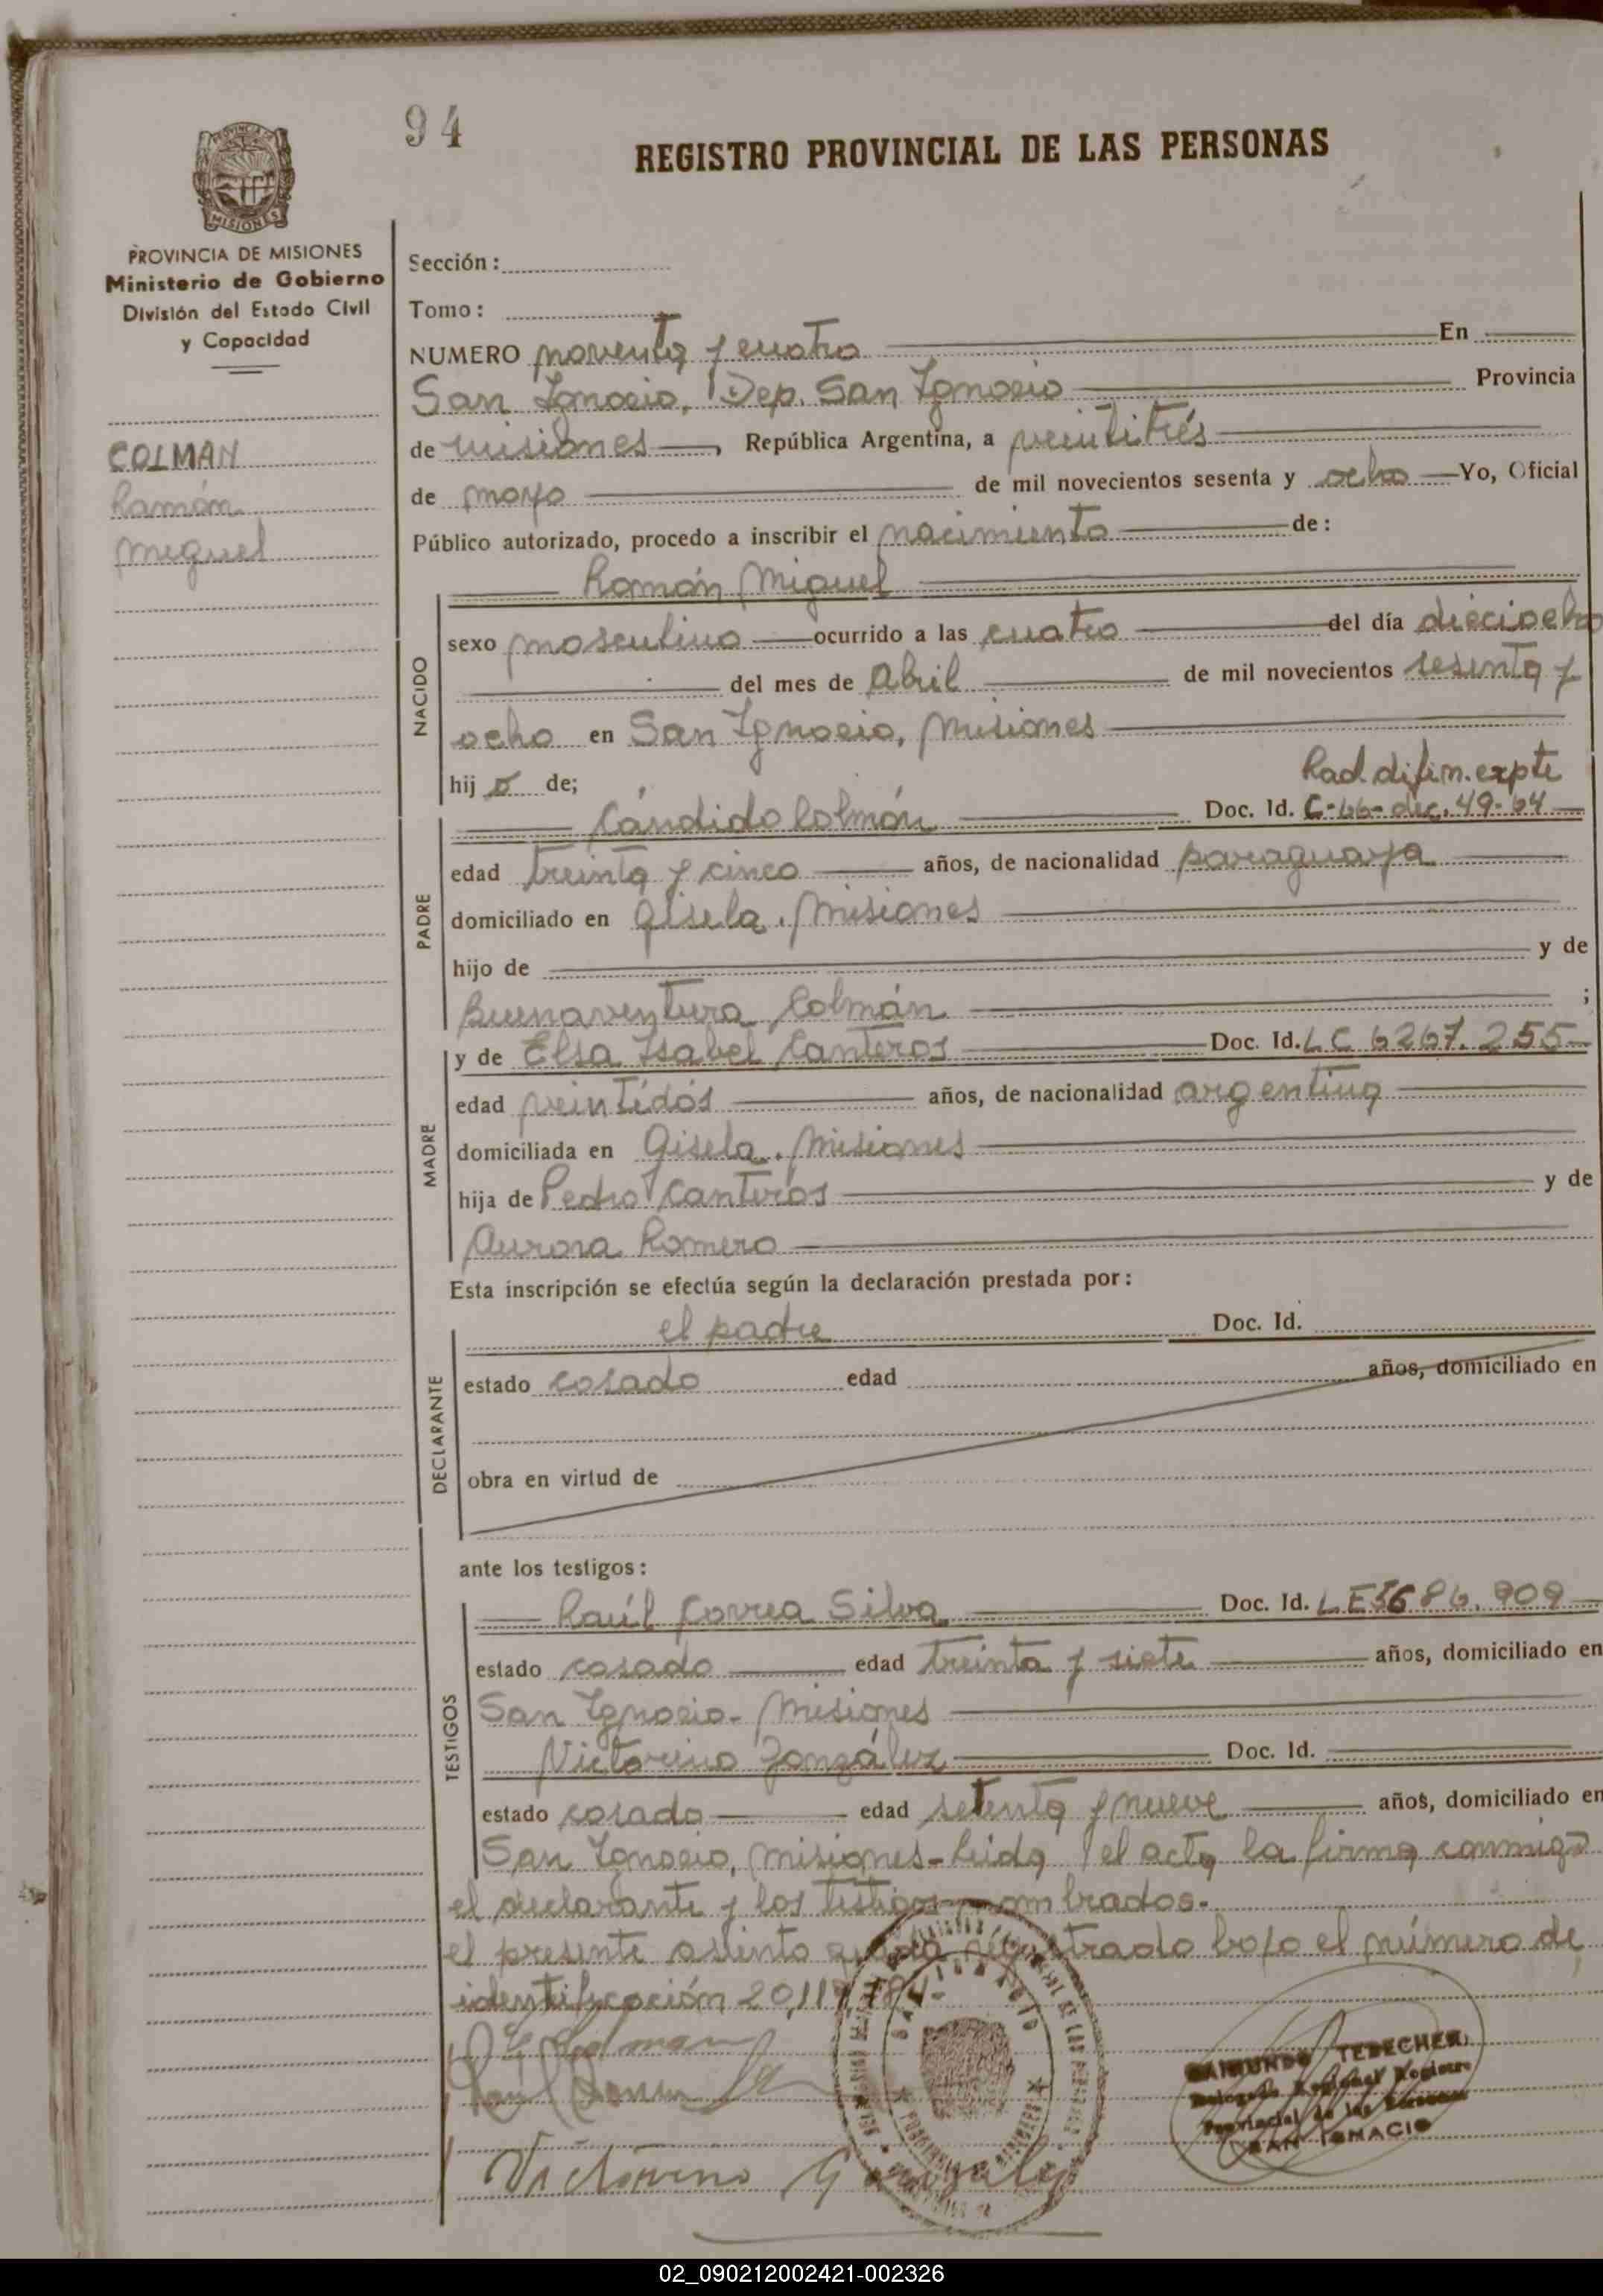 94
REGISTRO PROVINCIAL DE LAS PERSONAS
PROVINCIA DE MISIONES
Ministerio de Gobierno
División del Estado Civil
y Capacidad
COLMAN
Ramón
Miguel
Sección:
Tomo:
NUMERO noventa y cuatro En
San Ignacio, Dep. San Ignacio Provincia
de Misiones, República Argentina, a veintitrés
de mayo de mil novecientos sesenta y ocho Yo, Oficial
Público autorizado, procedo a inscribir el nacimiento de:
Ramón Miguel
NACIDO
sexo masculino ocurrido a las cuatro del día dieciocho
del mes de Abril de mil novecientos sesenta y
ocho en San Ignacio, Misiones
hijo de;
Rad. difin. expte
Cándido Colmán Doc. Id. C-66-dec. 49-64
PADRE
edad treinta y cinco años, de nacionalidad paraguaya
domiciliado en Gisela. Misiones
hijo de y de
Buenaventura Colmán ;
y de Elsa Isabel Canteros Doc. Id. LC 6267.255
MADRE
edad veintidós años, de nacionalidad argentina
domiciliada en Gisela. Misiones
hija de Pedro Canteros y de
Aurora Romero
Esta inscripción se efectúa según la declaración prestada por:
el padre Doc. Id.
DECLARANTE
estado casado edad años, domiciliado en
obra en virtud de
ante los testigos:
Raúl Correa Silva Doc. Id. LE
TESTIGOS
estado casado edad treinta y siete años, domiciliado en
San Ignacio- Misiones
Victorino González Doc. Id.
estado casado edad setenta y nueve años, domiciliado en
San Ignacio, Misiones- Leida el acta la firma conmigo
el declarante y los testigos nombrados.
el presente asiento queda registrado bajo el número de
identificación
Colman
Raúl
Victorino Gonzalez
RAIMUNDO TEBECHER
Delegado Regional Registro
Provincial de las Personas
SAN IGNACIO
02_090212002421-002326